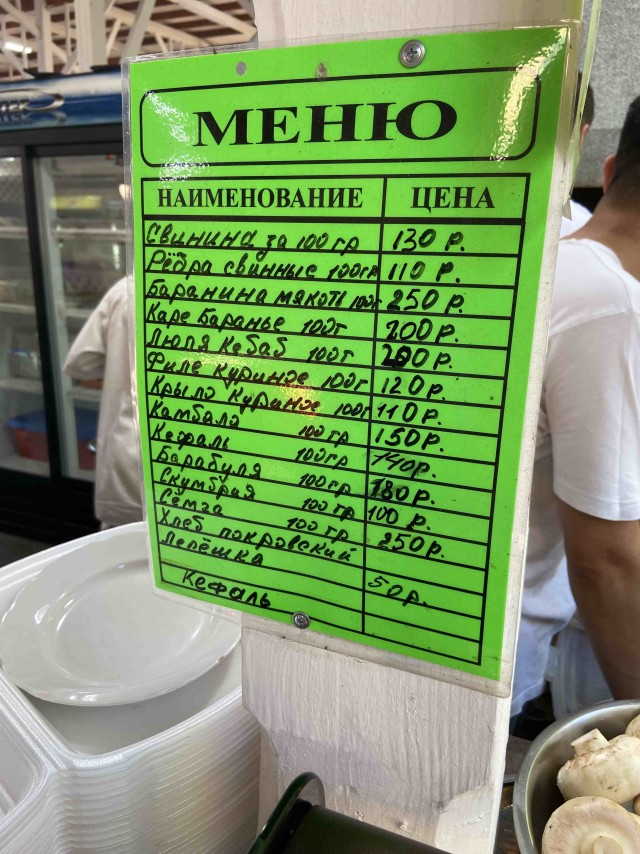 МЕНЮ
НАИМЕНОВАНИЕ ЦЕНА
Свинина за 100 гр 130 р.
Рёбра свинные 100гр 110 р.
Баранина мякоть 100г 250 р.
Каре баранье 100г 200р.
Люля кебаб 100г 200р.
Филе куриное 100г 120р.
Крыло куриное 100г 110р.
Камбала 100 гр 150р.
Кефаль 100гр 140р.
Барабуля 100гр 180р.
Скумбрия 100гр 100р.
Сёмга 100 гр 250р.
Хлеб покровский
Лепёшка 50р.
Кефаль